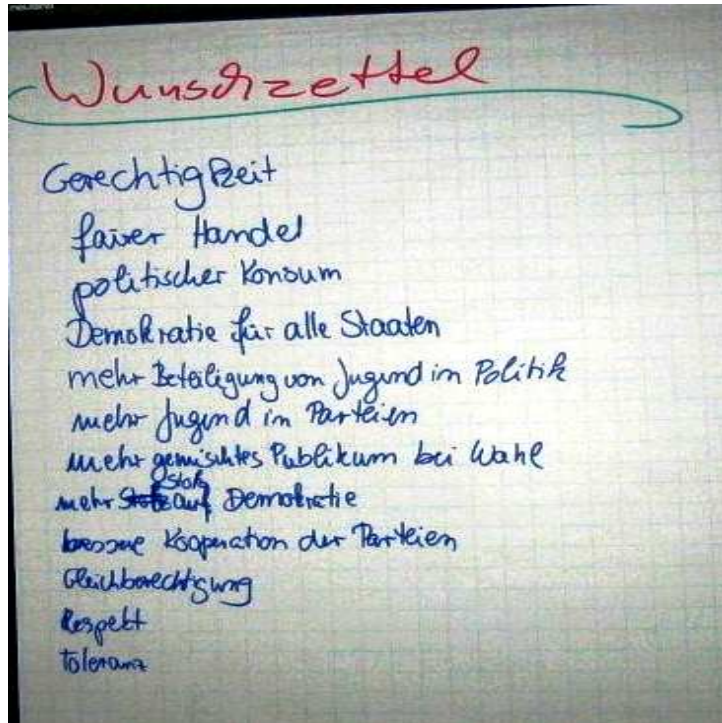 Wunschzettel
Gerechtigkeit
fairer Handel
politischer Konsum
Demokratie für alle Staaten
mehr Beteiligung von Jugend im Politik
mehr Jugend in Parteien
mehr gemischtes Publikum bei Wahl
mehr Stolz auf Demokratie
bessere Kooperation der Parteien
Gleichberechtigung
Respekt
Toleranz